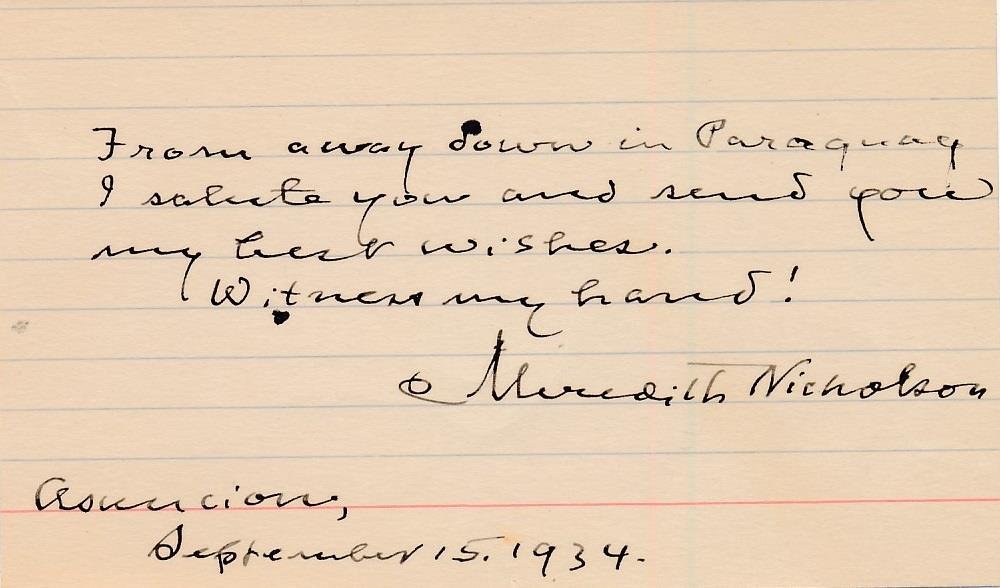 From away down in Paraguay
I salute you and send you
my best wishes.
Witness my hand!
Meredith Nicholson
Asuncion,
September 15. 1934.